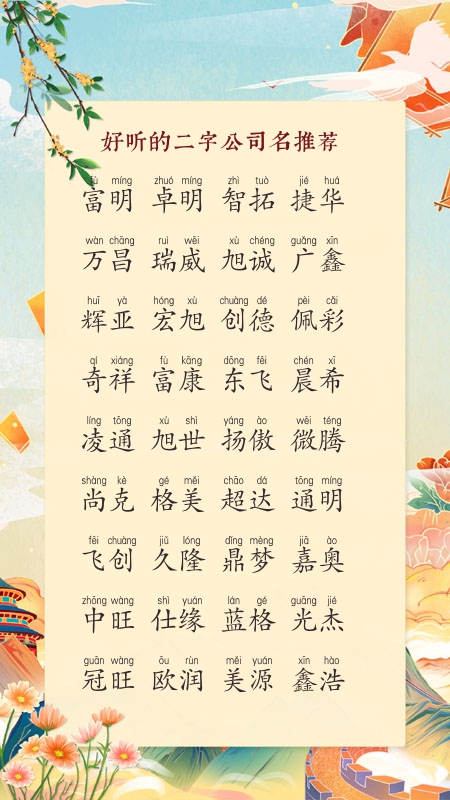 好听的二字公司名推荐
fù míng zhuó míng zhì tuò jié huá
富明 卓明 智拓 捷华
wàn chāng ruì wēi xù chéng guǎng xīn
万昌 瑞威 旭诚 广鑫
huī yà hóng xù chuàng dé pèi cǎi
辉亚 宏旭 创德 佩彩
qí xiáng fù kāng dōng fēi chén xī
奇祥 富康 东飞 晨希
líng tōng xù shì yáng ào wēi téng
凌通 旭世 扬傲 微腾
shàng kè gé měi chāo dá tōng míng
尚克 格美 超达 通明
fēi chuàng jiǔ lóng dǐng mèng jiā ào
飞创 久隆 鼎梦 嘉奥
zhōng wàng shì yuán lán gé guāng jié
中旺 仕缘 蓝格 光杰
guān wàng ōu rùn měi yuán xīn hào
冠旺 欧润 美源 鑫浩